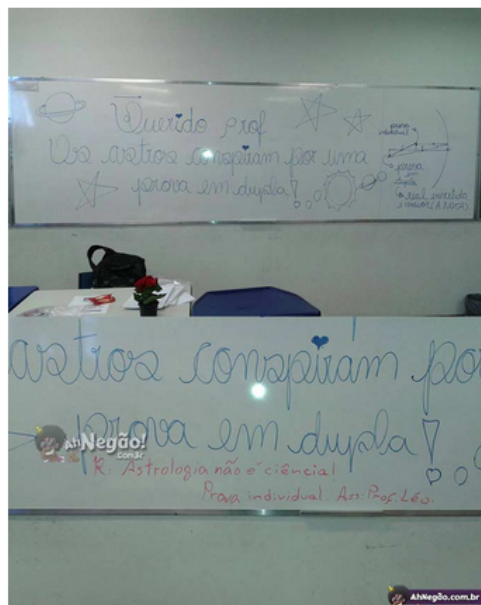 Querido prof
Os astros conspiram por uma
prova em dupla!
prova
individual
prova
em
dupla
astros conspiram po
prova em dupla!
AhNegão!
.com.br
R: Astrologia não é ciência!
Prova individual. Ass: Prof. Léo.
AhNegão.com.br